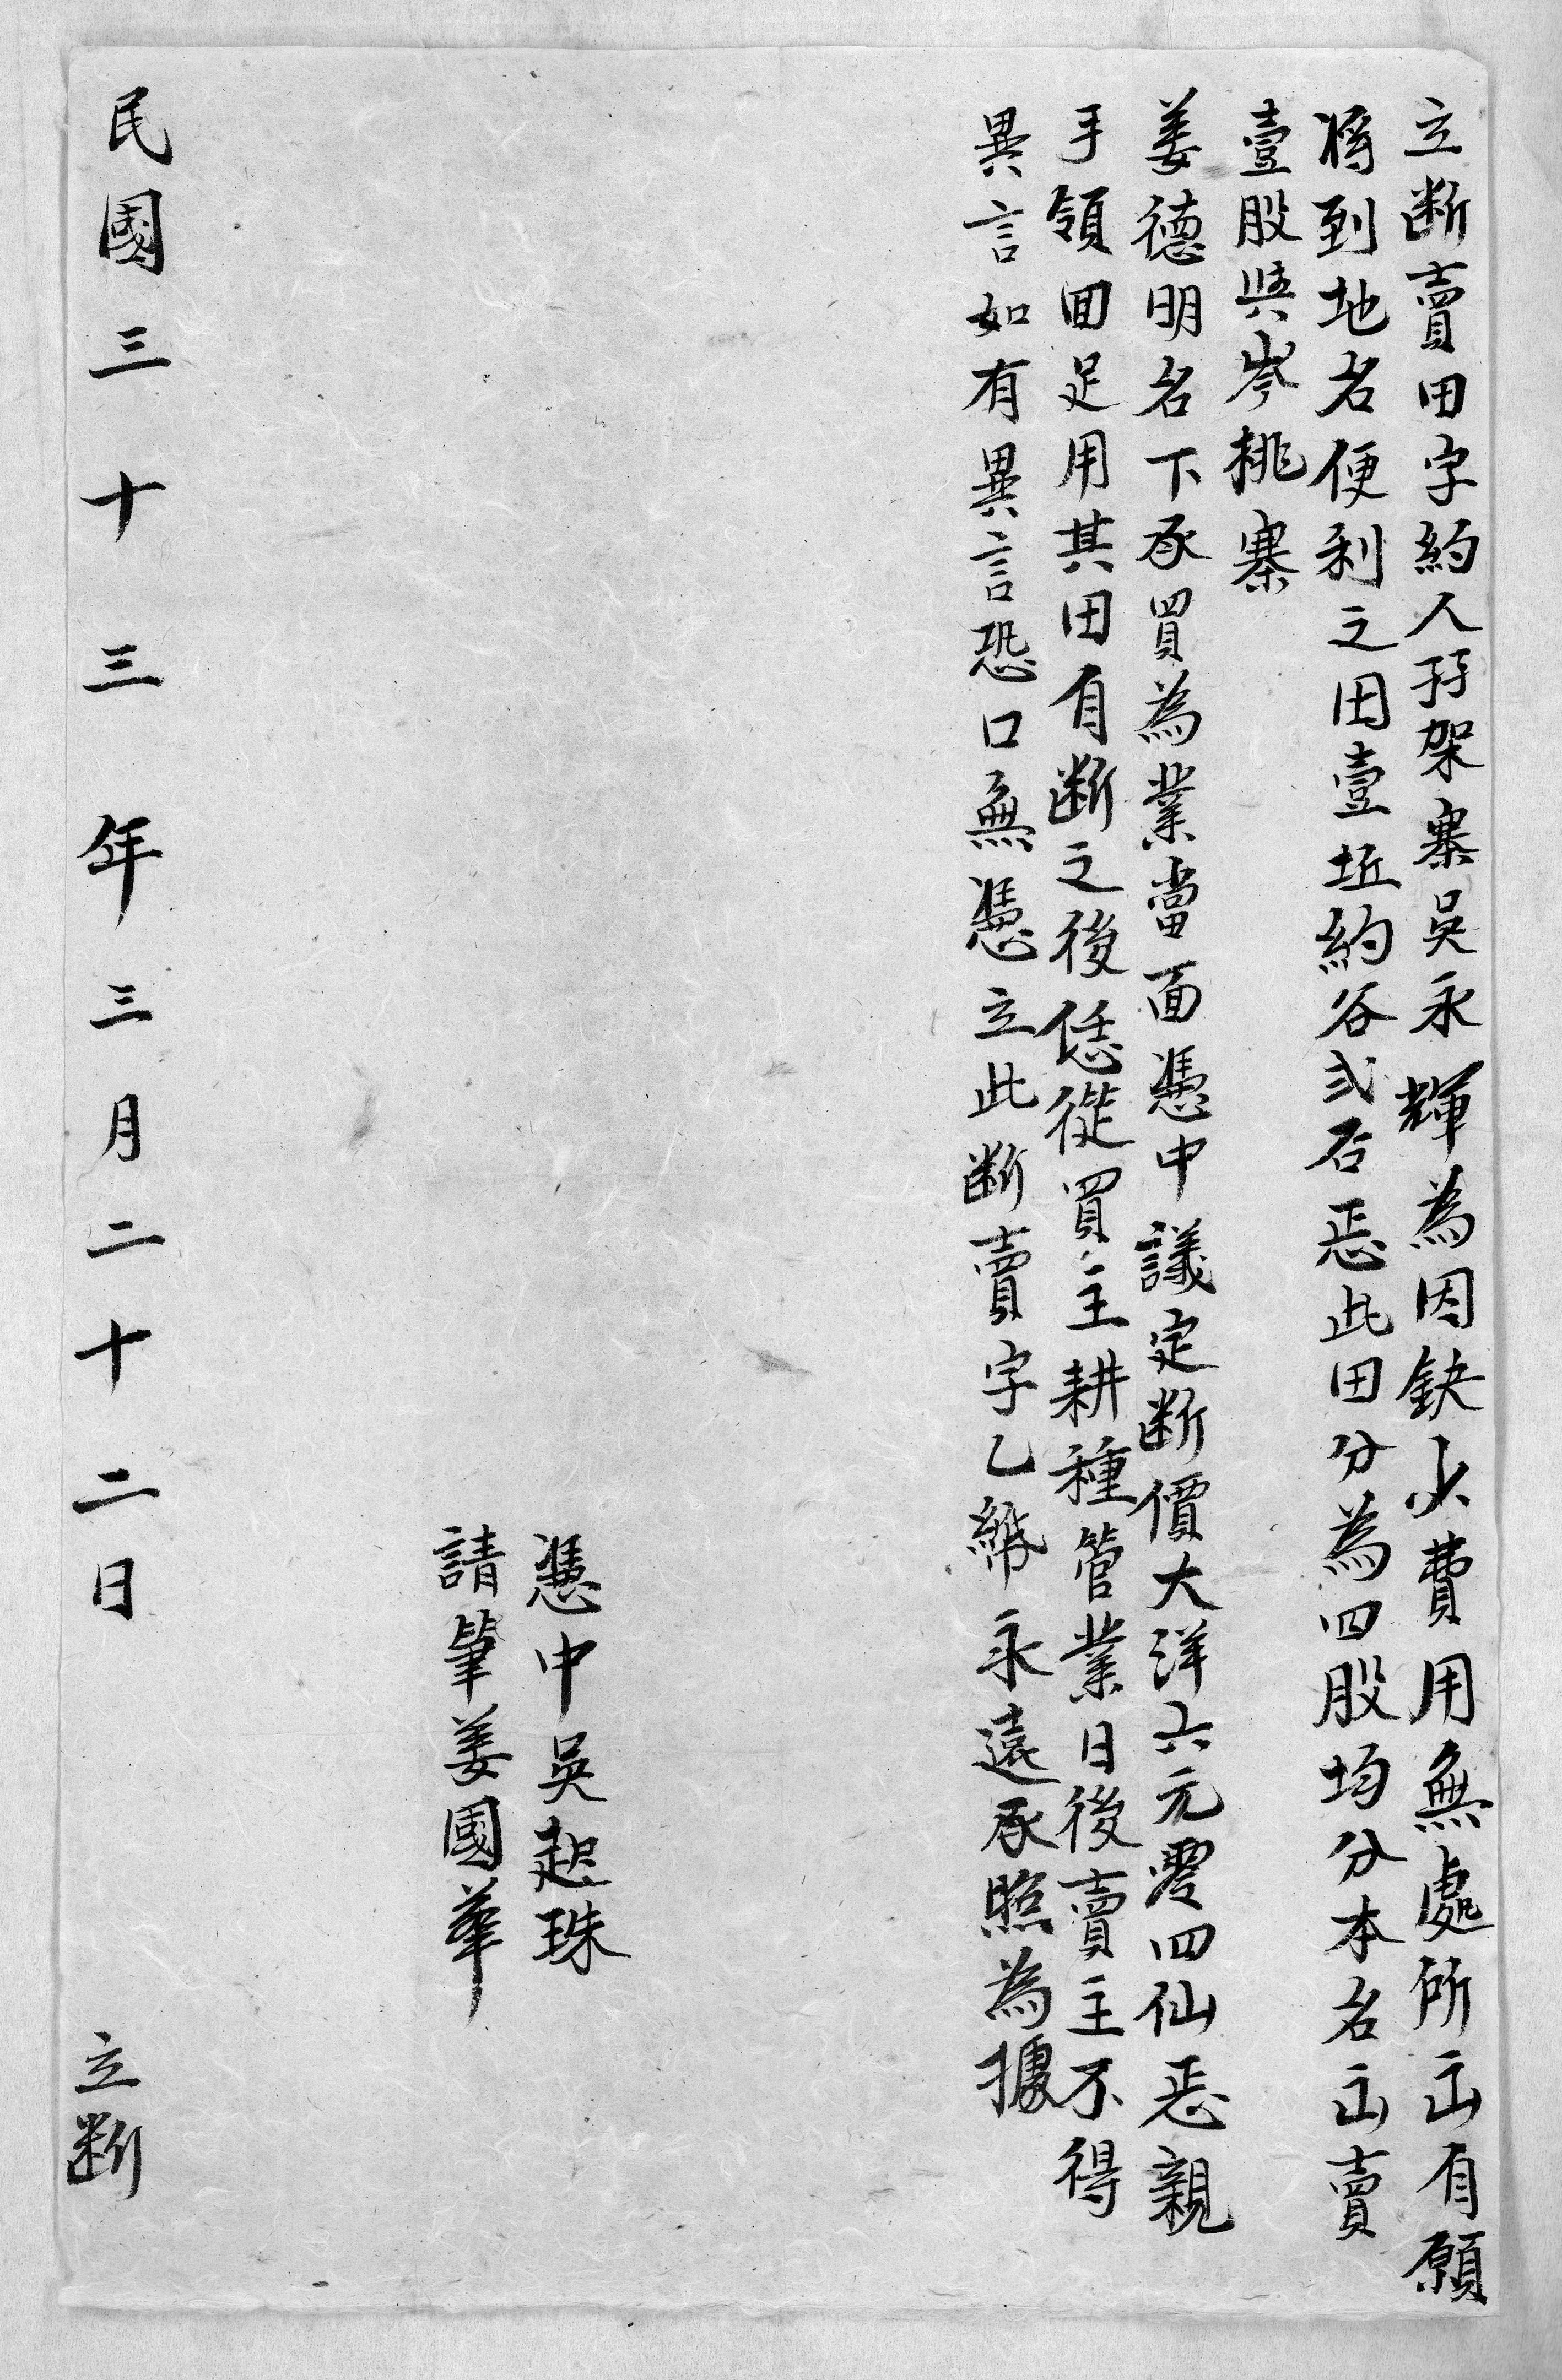 立断賣田字約人孖架寨吳永輝為因缺少費用無處所出自願
将到地名便利之田壹坵約谷弍石㤙此田分為四股均分本名出賣
壹股與岑桃寨
姜德明名下承買為業當面憑中議定断價大洋六元零四仙㤙親
手領回足用其田自断之後恁從買主耕種管業日後賣主不得
異言如有異言恐口無憑立此断賣字乙紙永遠承照為據
憑中吳起珠
請筆姜國華
民國三十三年三月二十二日 立断